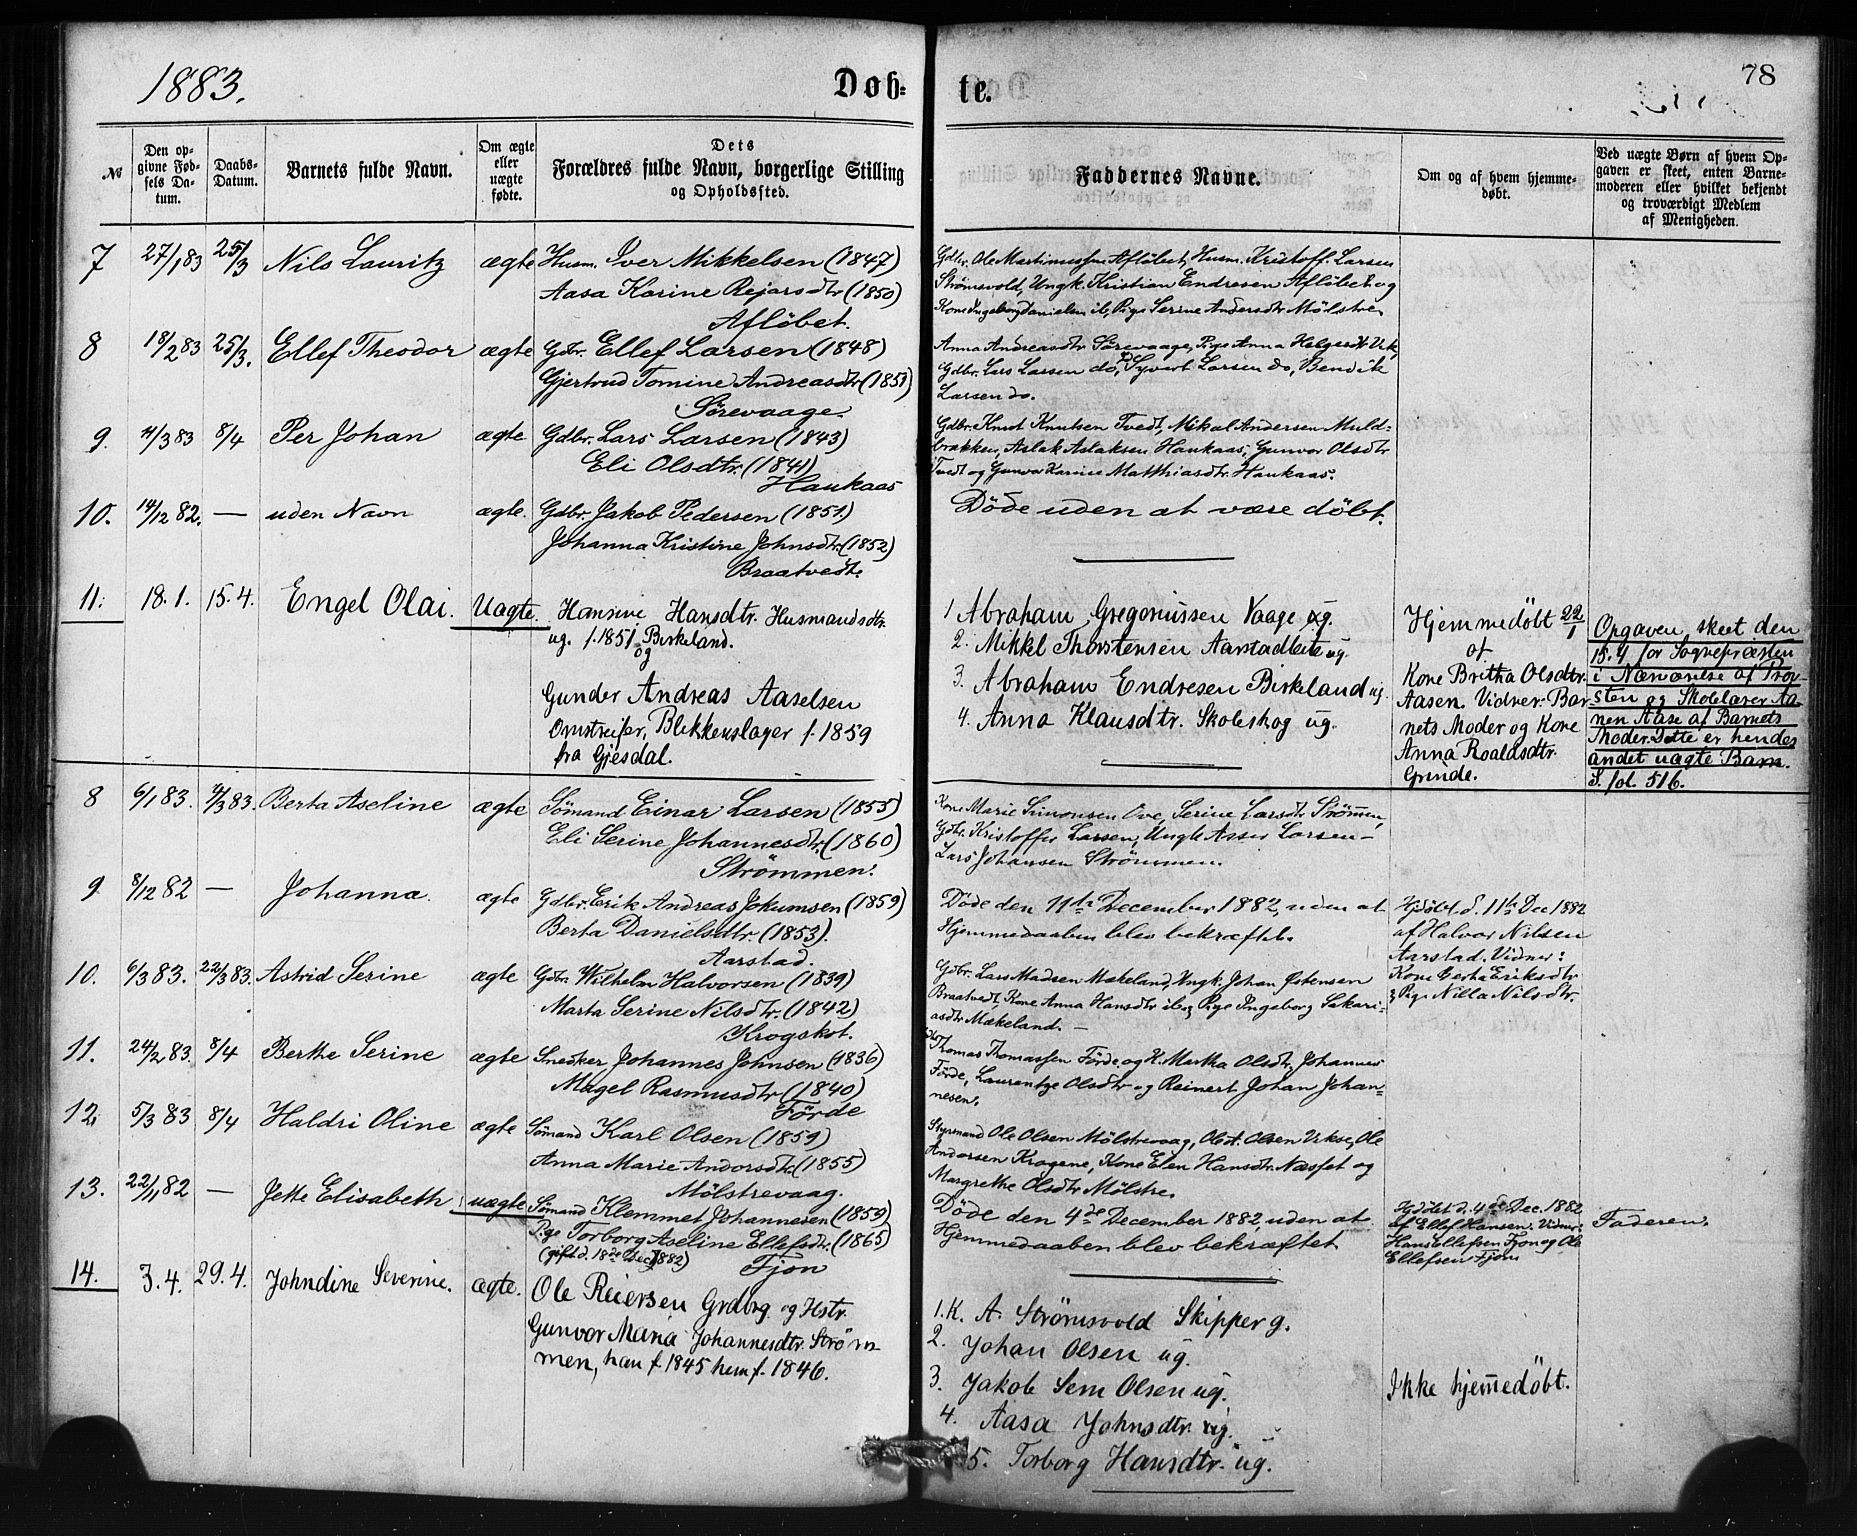 1883.
Døb-
te.
78
№
Den op-
givne Fød-
sels Da-
tum.
Daabs-
Datum.
Barnets fulde Navn.
Om ægte
eller
uægte
fødte.
Dets
Forældres fulde Navn, borgerlige Stilling
og Opholdssted.
Faddernes Navne.
Om og af hvem hjemme-
døbt.
Ved uægte Børn af hvem Op-
gaven er skeet, enten Barne-
moderen eller hvilket bekjendt
og troværdigt Medlem
af Menigheden.
7 27/1 83 25/3 Nils Lauritz ægte Husm. Iver Mikkelsen (1847)
Aasa Karine Rejarsdtr (1850)
Afløbet.
Gdbr. Ole Martinussen Afløbet, Husm. Kristoff. Larsen
Strømsvold, Ungk. Kristian Endresen Afløbet og
Kone Ingeborg Danielsen ib, Pige Serine Andersdtr Mølstre.
8 18/2 83 25/3. Ellef Theodor ægte Gdbr. Ellef Larsen (1848)
Gjertrud Tomine Andreasdtr (1851)
Sørevaage.
Anna Andreasdtr Sørevaage, Pige Anna Helgesdtr Urk,
Gdbr. Lars Larsen do, Syvert Larsen do, Bendik
Larsen do.
9. 11/3 83 8/4 Per Johan ægte Gdbr. Lars Larsen (1843)
Eli Olsdtr. (1841)
Haukaas
Gdbr. Knut Knutsen Tvedt, Mikal Andersen Muld-
brækken, Aslak Aslaksen Haukaas, Gunvor Olsdtr
Tvedt og Gunvor Karine Matthiasdtr. Haukaas.
10. 14/12 82. — uden Navn ægte. Gdbr. Jakob Pedersen (1851)
Johanna Kristine Johnsdtr. (1852)
Braatvedt.
Døde uden at være døbt.
11. 18. 1. 15. 4. Engel Olai. Uægte. Hansine Hansdtr. Husmandsdtr.
ug. f. 1851 Birkeland.
og
Gunder Andreas Aaselsen
Omstreifer, Blikkenslager f. 1859
fra Gjesdal.
1 Abraham Gregoriussen Vaage ug.
2. Mikkel Thorstensen Aarstadleite ug.
3. Abraham Endresen Birkeland ug.
4. Anna Klausdtr. Skoleskog ug.
Hjemmedøbt 22/1
af
Kone Britha Olsdtr.
Aasen. Vidner: Bar-
nets Moder og Kone
Anna Roaldsdtr.
Grinde.
Opgaven skeet den
15. 4 for Sognepræsten
i Nærværelse af Prov-
sten og Skolelærer Aa-
nen Aase af Barnets
Moder. Dette er hendes
andet uægte Barn.
S. fol. 516.
8 6/1 83. 4/3 83. Berta Aseline ægte Sømand Einar Larsen (1855)
Eli Serine Johannesdtr. (1860)
Strømmen.
Kone Marie Simonsen Ove, Serine Larsdtr Strømmen,
Gdbr. Kristoffer Larsen, Ungk Asser Larsen —
Lars Johansen Strømmen.
9 8/12 82 — Johanna. ægte Gdbr. Erik Andreas Jokumsen (1859)
Berta Danielsdtr. (1853).
Aarstad.
Døde den 11te December 1882, uden at
Hjemmedaaben blev bekræftet.
Hjdøbt d. 11te Dec 1882
af Halvor Nilsen
Aarstad. Vidner:
Kone Berta Eriksdtr
& Pige Nilla Nilsdtr.
10. 6/3 83. 22/3 83. Astrid Serine ægte Gdbr. Wilhelm Halvorsen (1839)
Marta Serine Nilsdtr. (1842)
Krogskot.
Gdbr. Lars Madsen Mækeland, Ungk. Johan Østensen
Braatvedt, Kone Anna Hansdtr ib og Pige Ingeborg Sakari-
asdtr Mækeland. —
11. 24/2 83. 8/4 Berthe Serine ægte Snedker Johannes Johnsen (1836)
Magel Rasmusdtr (1840)
Førde
Thomas Thomassen Førde, og K. Martha Olsdtr, Johannes
Førde, Laurentze Olsdtr og Reinert Johan Johan-
nesen.
12. 5/3 83 8/4 Haldri Oline ægte Sømand Karl Olsen (1859)
Anna Marie Andorsdtr (1855)
Mølstrevaag.
Styrmand Ole Olsen Mølstrevaag, Olsen Urke, Ole
Andersen Krogene, Kone Elen Hansdtr. Næsset og
Margrethe Olsdtr Mølstre.
13. 22/11 82 — Jette Elisabeth uægte Sømand Klemmet Johannesen (1859)
Pige Torborg Aseline Ellefsdtr. (1865)
(gift d. 18de Dec 1882) Fjon
Døde den 4de December 1882, uden at
Hjemmedaaben blev bekræftet
døbt d. 4de Dec. 1882
af Ellef Hansen. Vidner:
Hans Ellefsen Fjon og Ole
Ellefsen Fjon.
Faderen.
14. 3. 4. 29. 4. Johndine Severine. ægte. Ole Reiersen Grdbrg og Hstr.
Gunvor Maria Johannesdtr. Strøm-
men, han f. 1845 hun f. 1846.
1. K. A. Strømsvold Skipper g.
2. Johan Olsen ug.
3. Jakob Sem Olsen ug.
4. Aasa Johnsdtr. ug.
5. Torborg Hansdtr. ug.
Ikke hjemmedøbt.